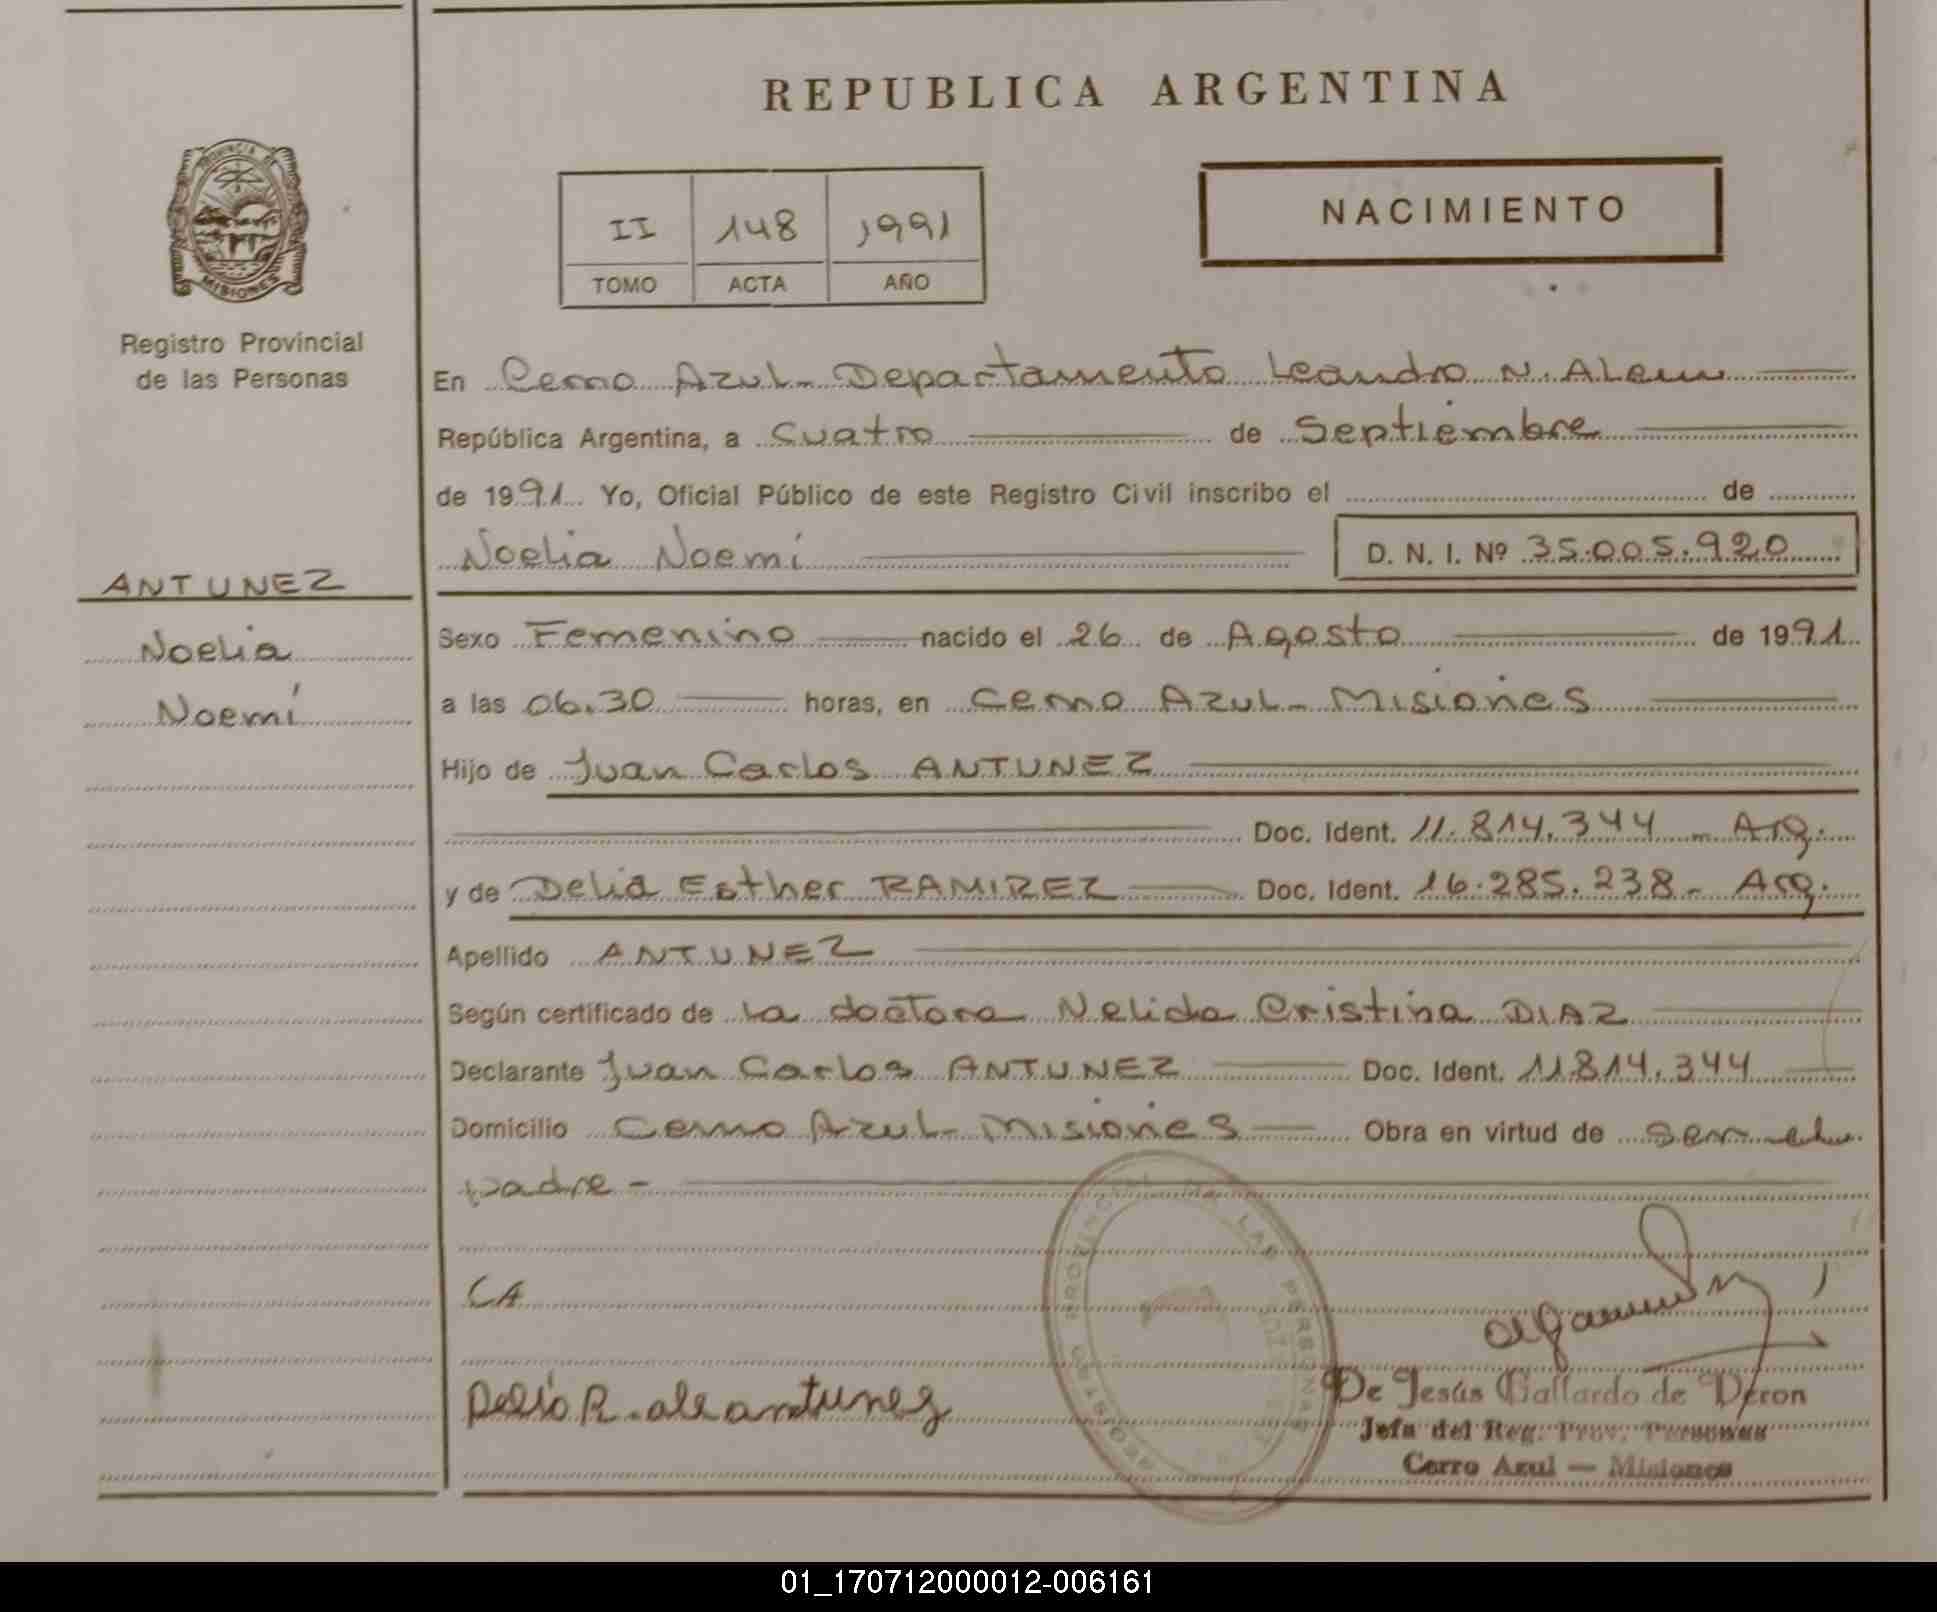 REPUBLICA ARGENTINA
PROVINCIA DE
MISIONES
Registro Provincial
de las Personas
II 148 1991
TOMO ACTA AÑO
NACIMIENTO
En Cerro Azul- Departamento Leandro N. Alem
República Argentina, a Cuatro de Septiembre
de 1991 Yo, Oficial Público de este Registro Civil inscribo el de
Noelia Noemí D. N. I. Nº 35.005.920
ANTUNEZ
Noelia
Noemí
Sexo Femenino nacido el 26 de Agosto de 1991
a las 06.30 horas, en Cerro Azul- Misiones
Hijo de Juan Carlos ANTUNEZ
Doc. Ident. 11.814.344 - Arg.
y de Delia Esther RAMIREZ Doc. Ident. 16.285.238.- Arg.
Apellido ANTUNEZ
Según certificado de La doctora Nelida Cristina DIAZ
Declarante Juan Carlos ANTUNEZ Doc. Ident. 11.814.344
Domicilio Cerro Azul- Misiones Obra en virtud de ser el
padre -
CA
REGISTRO PROVINCIAL DE LAS PERSONAS
Delio R. de antunez
De Jesús Gallardo de Deron
Jefa del Reg. Prov. Personas
Cerro Azul — Misiones
01_170712000012-006161